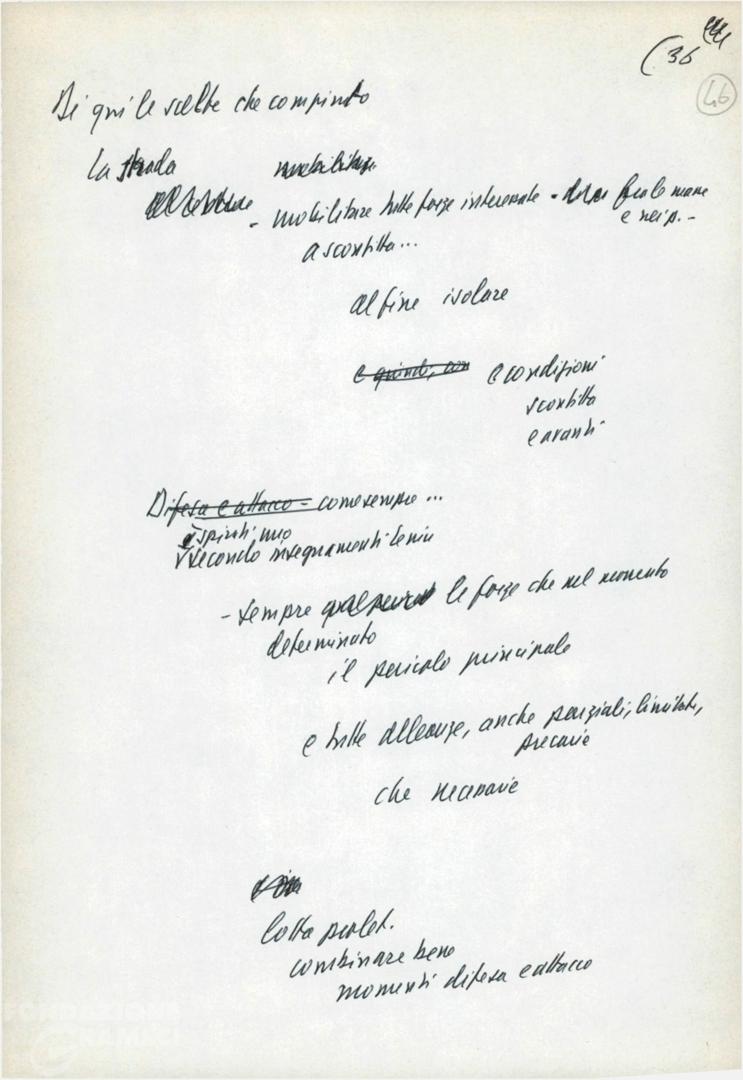 (36
46
Di qui le scelte che compiuto
La strada
- mobilitare tutte forze interessate -
e neip. -
a sconfitta...
al fine isolare
e quindi, con e condizioni
sconfitta
e avanti
Difesa e attacco - come sempre ...
ispirati
secondo insegnamenti Lenin
- sempre le forze che nel momento
determinato
il pericolo principale
e tutte alleanze, anche parziali, limitate,
precarie
che necessarie
lotta prolet.
combinare bene
momenti difesa e attacco
FONDAZIONE
GRAMSCI